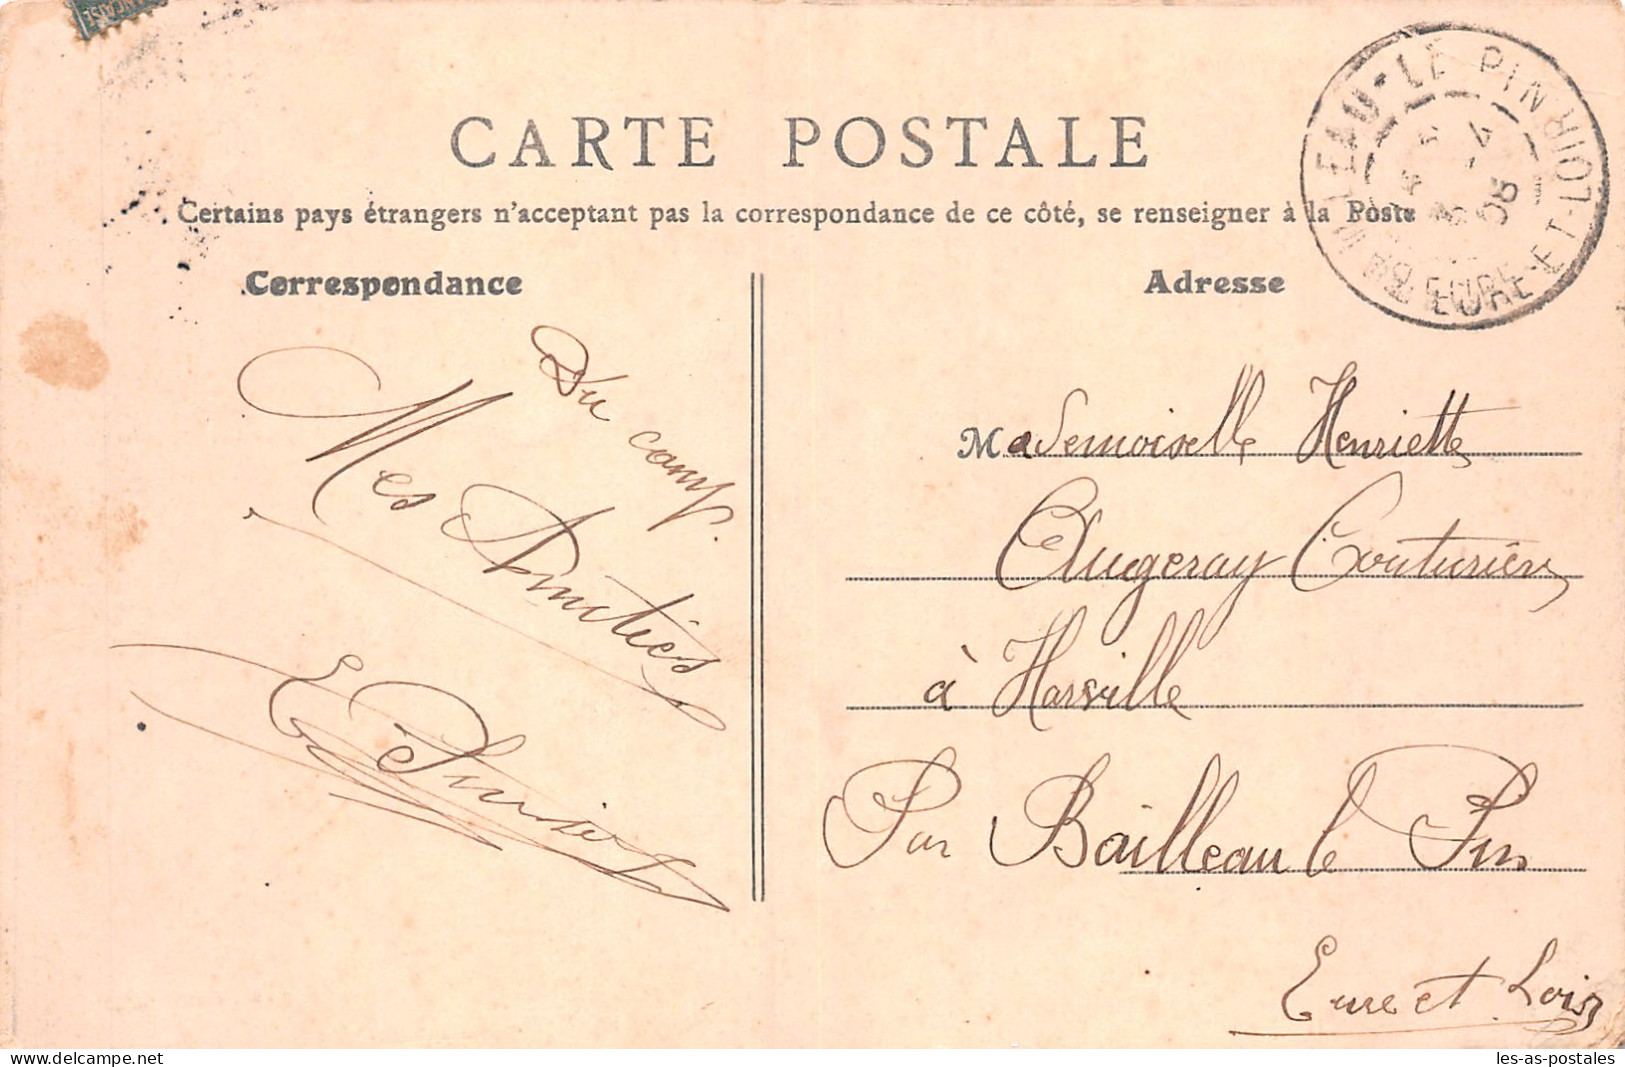 CARTE POSTALE
Certains pays étrangers n'acceptant pas la correspondance de ce côté, se renseigner à la Poste
Correspondance
Adresse
Du camp.
Mes Amitiés
Mademoiselle Henriette
Augeray Couturière
à Harville
Par Bailleau le Pin
Eure et Loir
LEAU-LE PIN
EURE-ET-LOIR
08
les-as-postales